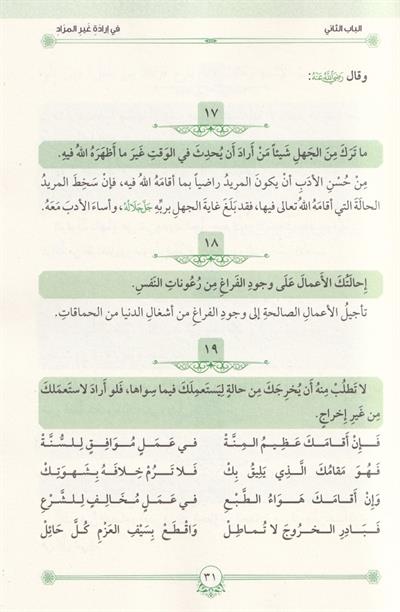 الباب الثاني
في إرادة غير المراد
وقال رَضِيَ اللهُ عَنْهُ:
١٧
ما تَرَكَ مِنَ الجَهلِ شَيئاً مَنْ أَرادَ أَن يُحدِثَ في الوَقتِ غَيرَ ما أَظهَرَهُ اللهُ فيهِ.
مِنْ حُسْنِ الأدَبِ أنْ يكونَ المريدُ راضياً بما أقامَهُ اللهُ فيه، فإنْ سَخِطَ المريدُ
الحالةَ التي أقامَهُ اللهُ تعالى فيها، فقد بَلَغَ غايةَ الجهلِ بربِّهِ جَلَّ جَلَالُهُ، وأساءَ الأدبَ مَعَهُ.
١٨
إِحالَتُكَ الأَعمالَ عَلَى وجودِ الفَراغِ مِن رُعُوناتِ النَّفسِ.
تأجيلُ الأعمالِ الصالحةِ إلى وجودِ الفراغِ من أشغالِ الدنيا من الحماقاتِ.
١٩
لا تَطلُبْ مِنهُ أَن يُخرِجَكَ مِن حالةٍ لِيَستَعمِلَكَ فيما سِواها، فَلو أَرادَ لاستَعمَلَكَ
مِن غَيرِ إِخراجٍ.
فَـإِنْ أَقَامَـكَ عَظِيـمُ المِنَّـةْ في عَمَـلٍ مُوَافِـقٍ لِلسُّـنَّةْ
فَهُـوَ مَقامُكَ الَّـذِي يَلِيقُ بِكْ فَـلا تَـرُمْ خِلافَـهُ بِشَهْوَتِكْ
وَإِنْ أَقامَـكَ هَـوَاءُ الطَّبْعِ في عَمَـلٍ مُخالِـفٍ لِلشَّـرْعِ
فَبَـادِرِ الخُـرُوجَ لا تُماطِـلْ وَاقْطَعْ بِسَيْفِ العَزْمِ كُلَّ حائِلْ
٣١